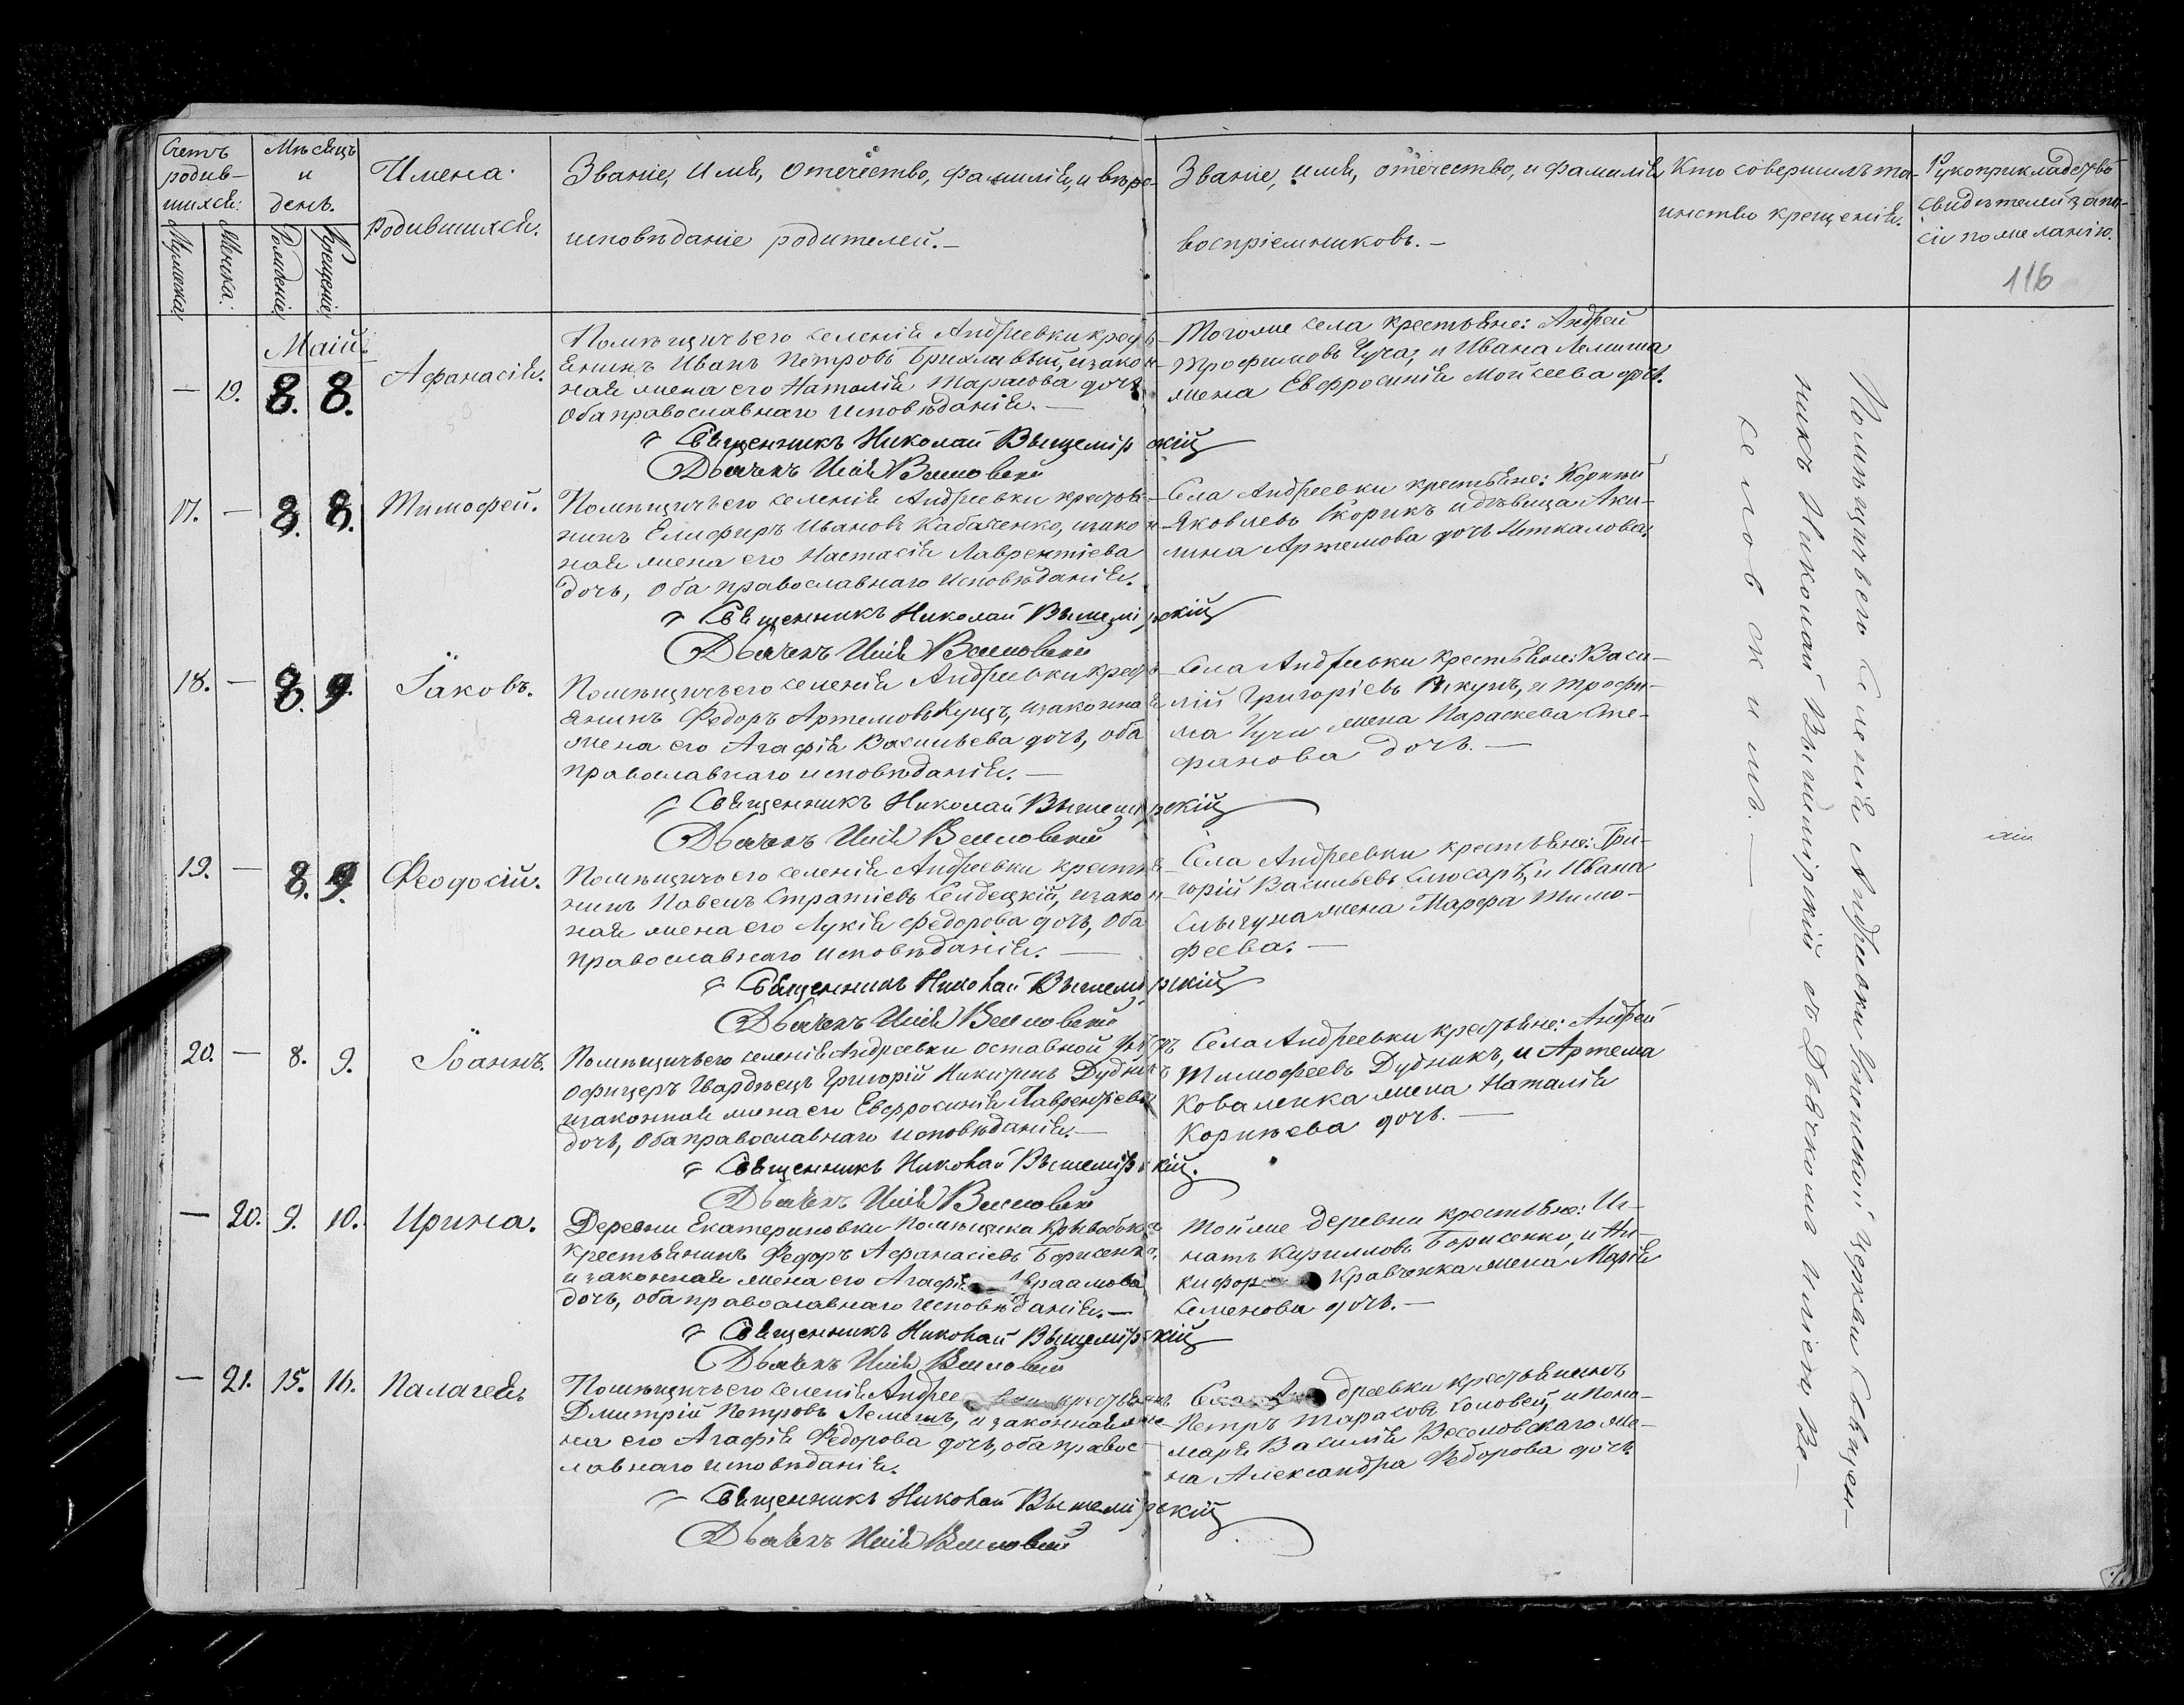 Счетъ
родив-
шихся:
Мужеска
Женска:
Мѣсяцъ
и
день.
Рожденіе
Крещеніе
Имена
Родившихся.
Званіе, Имя, Отечество, фамилія, и вѣро-
исповѣданіе родителей.-
Званіе, имя, отечество, и фамилія
воспріемниковъ.-
Кто совершилъ та-
инство крещенія.
Рукоприкладство
свидѣтелей записи
по желанію.
116
Май.
— 19. 8. 8.
Афанасія.
Помѣщичьего селенія Андреевки кресть-
янинъ Иванъ Петровъ, и закон-
ная жена его Наталія Тарасова дочь
Оба православнаго исповѣданія.—
Священникъ Николай Вышемірскій
Дьячекъ Илія Веселовскій
Тогоже села крестьяне: Андрей
Трофимовъ Чуча, и Ивана Лемиша
жена Евфросинія Мойсеева дочь.
17. — 8. 8.
Тимофей.
Помѣщичьего селенія Андреевки крестья-
нинъ Елисфиръ Ивановъ Кабаченко, и закон-
ная жена его Настасія Лаврентіева
дочь, Оба православнаго исповѣданія.
Священникъ Николай Вышемірскій
Дьячекъ Илія Веселовскій
Села Андреевки крестьяне:
Яковлевъ Скорикъ и дѣвица Аки-
лина Артемова дочь
18. — 8. 9.
Іаковъ.
Помѣщичьего селенія Андреевки кресть-
янинъ Федоръ Артемовъ Куцъ, и законная
жена его Агафія Васильева дочь, оба
православнаго исповѣданія.—
Священникъ Николай Вышемірскій
Дьячекъ Илія Веселовскій
Села Андреевки крестьяне: Васи-
лій Григоріевъ и Трофи-
ма Чучи жена Параскева Сте-
фанова дочь.—
19. — 8. 9.
Феодосій.
Помѣщичьего селенія Андреевки крестья-
нинъ Павелъ Стратіевъ и закон-
ная жена его Лукія Федорова дочь, Оба
православнаго исповѣданія.—
Священникъ Николай Вышемірскій
Дьячекъ Илія Веселовскій
Села Андреевки крестьяне: Гри-
горій Васильевъ Слюсарь, и Ивана
жена Марфа Тимо-
феева.—
20. — 8. 9.
Іоаннъ.
Помѣщичьего селенія Андреевки Оставной
Офицеръ Гвардѣецъ Григорій Никитинъ Дудникъ
и законная жена его Евфросинія Лаврентьева
дочь, Оба православнаго исповѣданія.—
Священникъ Николай Вышемірскій.
Дьячекъ Илія Веселовскій
Села Андреевки крестьяне: Андрей
Тимофеевъ Дудникъ, и Артема
Коваленка жена Наталія
Корнѣева дочь.—
— 20. 9. 10.
Ирина.
Деревни Екатериновки Помѣщика
крестьянинъ Федоръ Афанасіевъ Борисенко,
и законная жена его Агафія Авраамова
дочь, оба православнаго исповѣданія.—
Священникъ Николай Вышемірскій
Дьячекъ Илія Веселовскій
Тойже деревни крестьяне: Иг-
натъ Кириловъ Борисенко, и Ни-
кифора Кравченка жена Марія
Семенова дочь.—
— 21. 15. 16.
Палагея.
Помѣщичьего селенія Андреевки крестьянинъ
Дмитрій Петровъ Лемешъ, и законная же-
на его Агафія Федорова дочь, оба правос-
лавнаго исповѣданія.
Священникъ Николай Вышемірскій
Дьячекъ Илія Веселовскій
Села Андреевки крестьянинъ
Петръ Тарасовъ Соловей, и Поно-
маря Василія Веселовскаго же-
на Александра Федорова дочь.
Помѣщичьего Селенія Андреевки Успенской церкви Священ-
никъ Николай Вышемірскій съ Дьячкомъ Иліею Ве-
селовскимъ.—